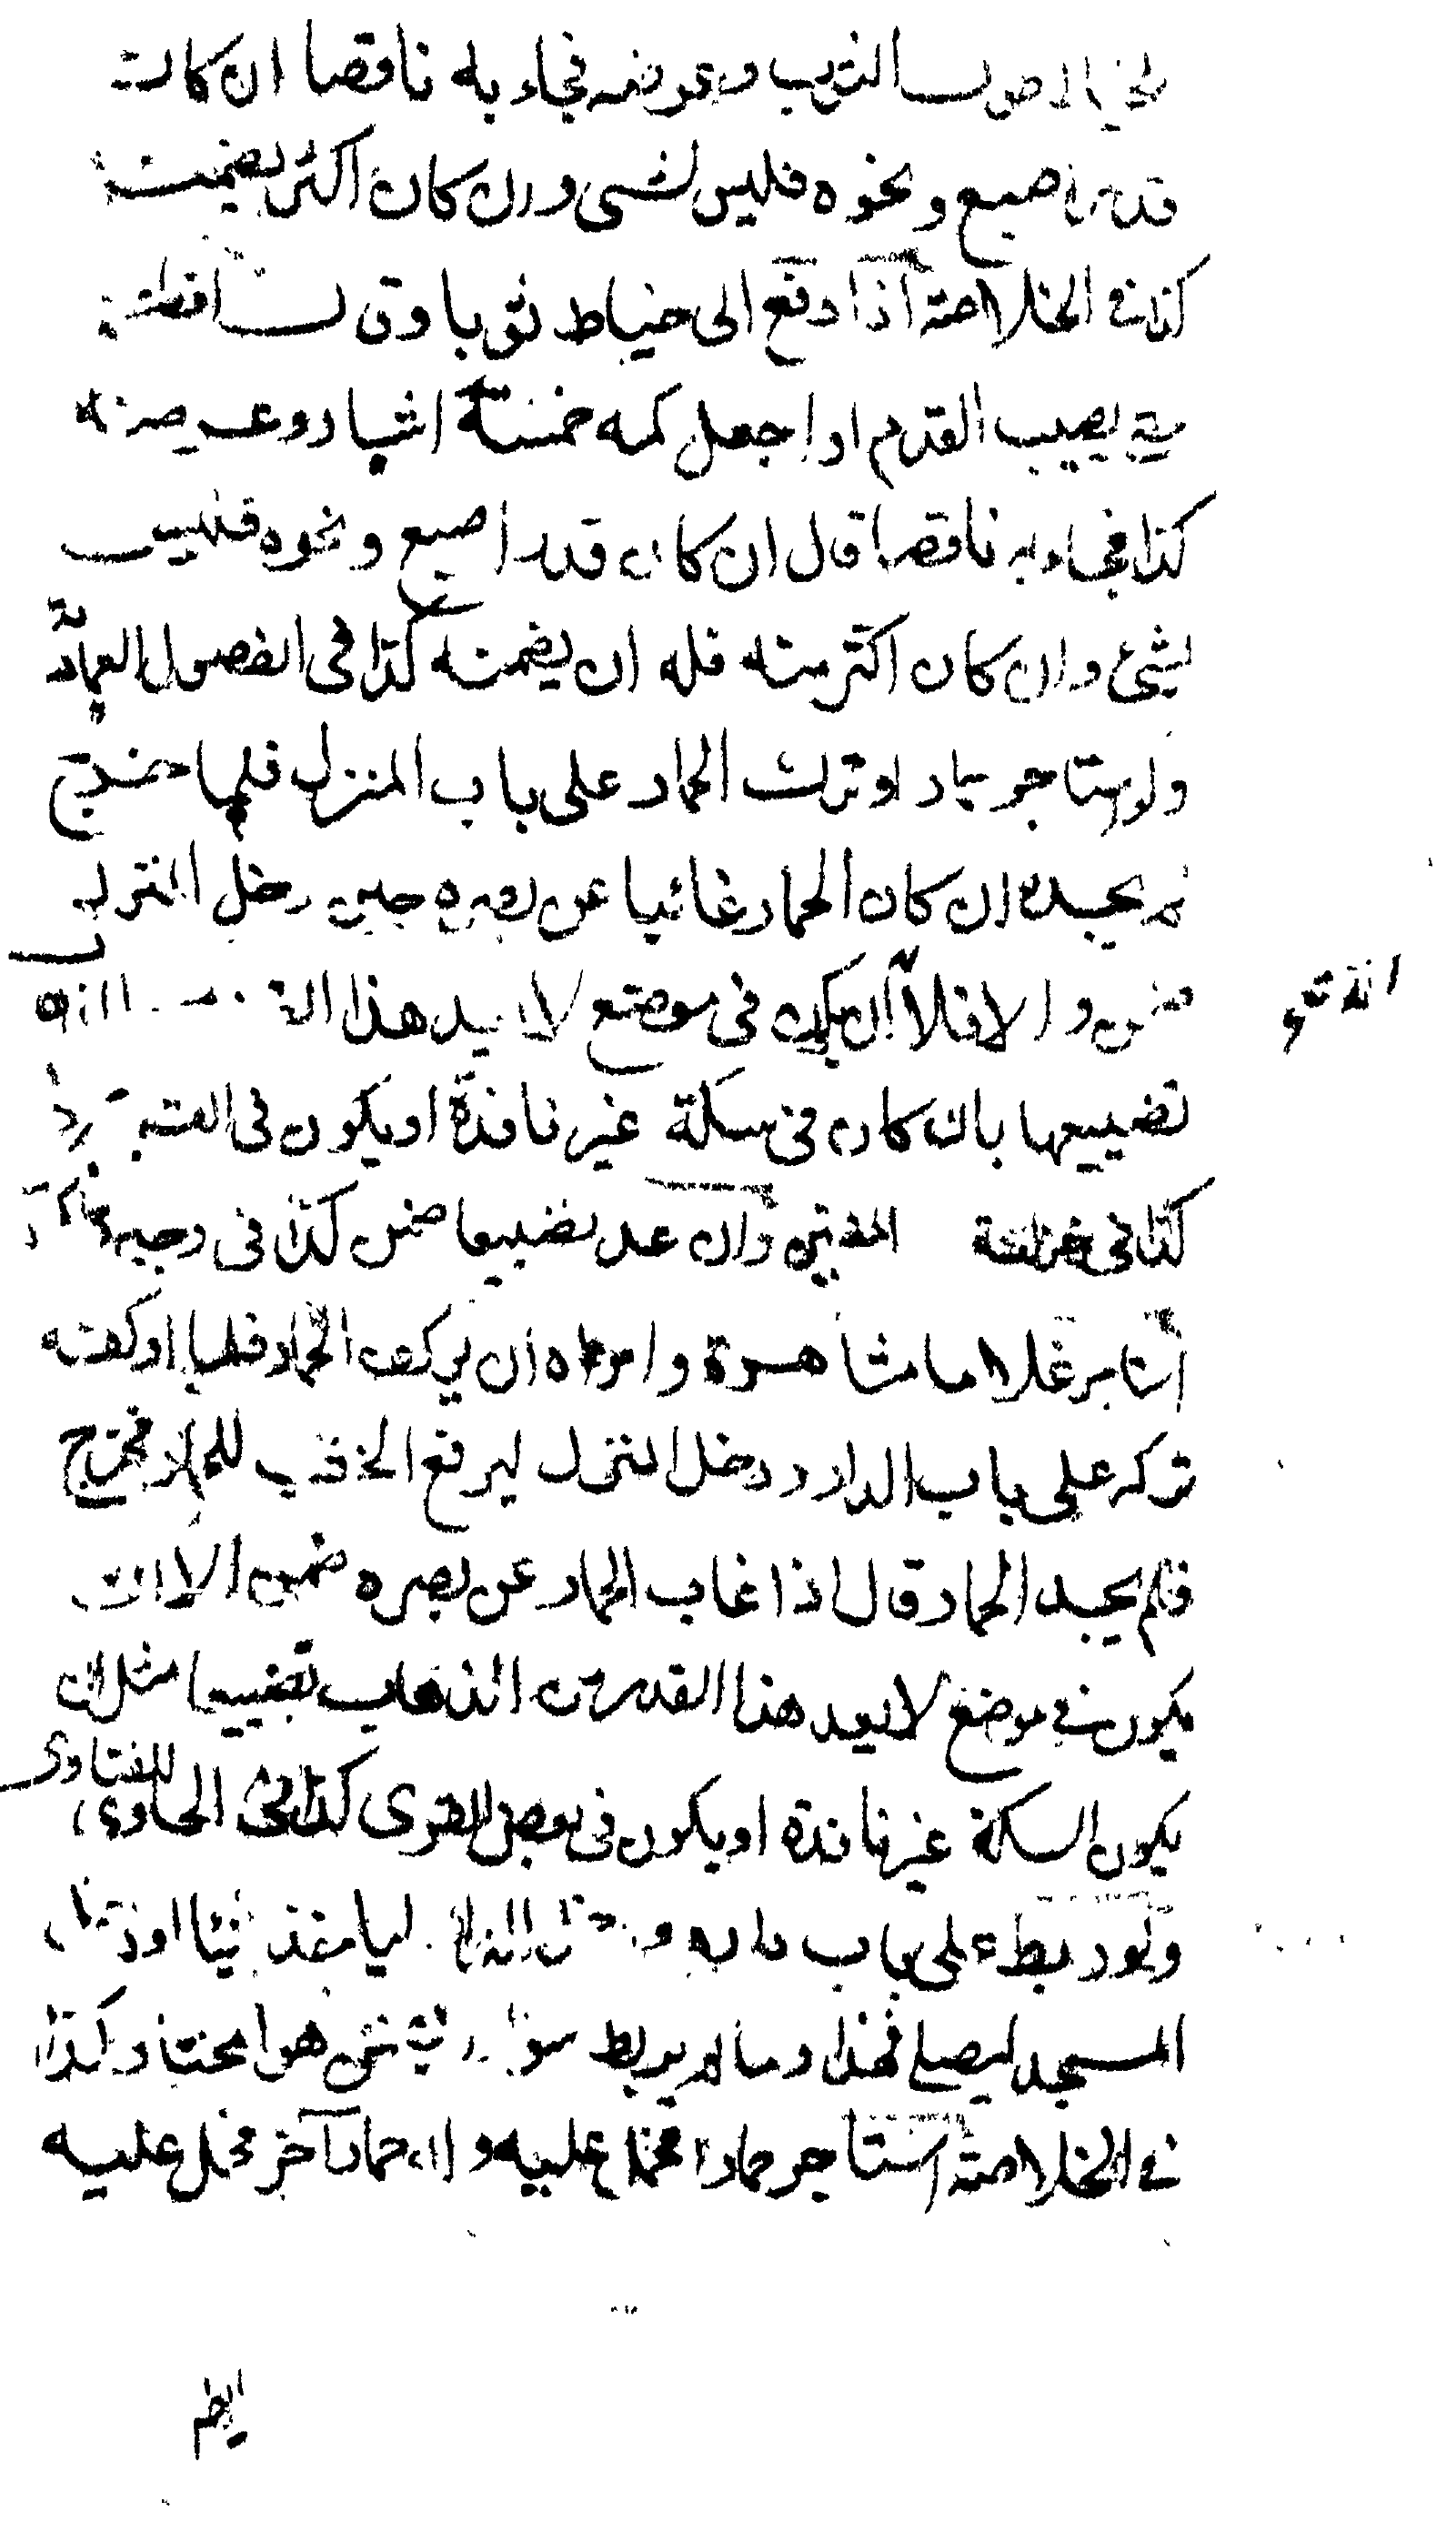 الثوب وعرضه فجاء به ناقصا ان كان
قدر اصبع ونحوه فليس بشى وان كان اكثر يضمنه
كذا فى الخلاصة اذا دفع الى خياط ثوبا وقال اقطعه
يصيب القدم او اجعل كمه خمسة اشبار وعرضه
كذا فجاء به ناقصا قال ان كان قدر اصبع ونحوه فليس
بشئ وان كان اكثر منه فله ان يضمنه كذا فى الفصول العمادية
ولو استاجر حمارا وترك الحمار على باب المنزل فلما خرج
لم يجده ان كان الحمار غائبا عن بصره حين دخل المنزل
ضمن والا فلا الا ان يكون فى موضع لا يعد هذا
تضييعا بان كان فى سكة غير نافذة او يكون فى
كذا فى خزانة المفتين وان عد تضييعا ضمن كذا فى وجيز
استاجر غلاما مشاهرة وامره ان يركف الحمار فلما اوكفه
تركه على باب الدار ودخل المنزل ليرفع للحمار فخرج
فلم يجد الحمار قال اذا غاب الحمار عن بصره ضمن الا ان
يكون فى موضع لا يعد هذا القدر من الذهاب تضييعا مثل ان
يكون السكة غير نافذة او يكون فى بعض القرى كذا فى الحاوى للفتاوى
ولو ربط على باب داره
المسجد ليصلى فهذا وما لم يربط سواء هو المختار كذا
فى الخلاصة استاجر حمارا فضاع عليه حمارا اخر فحمل عليه